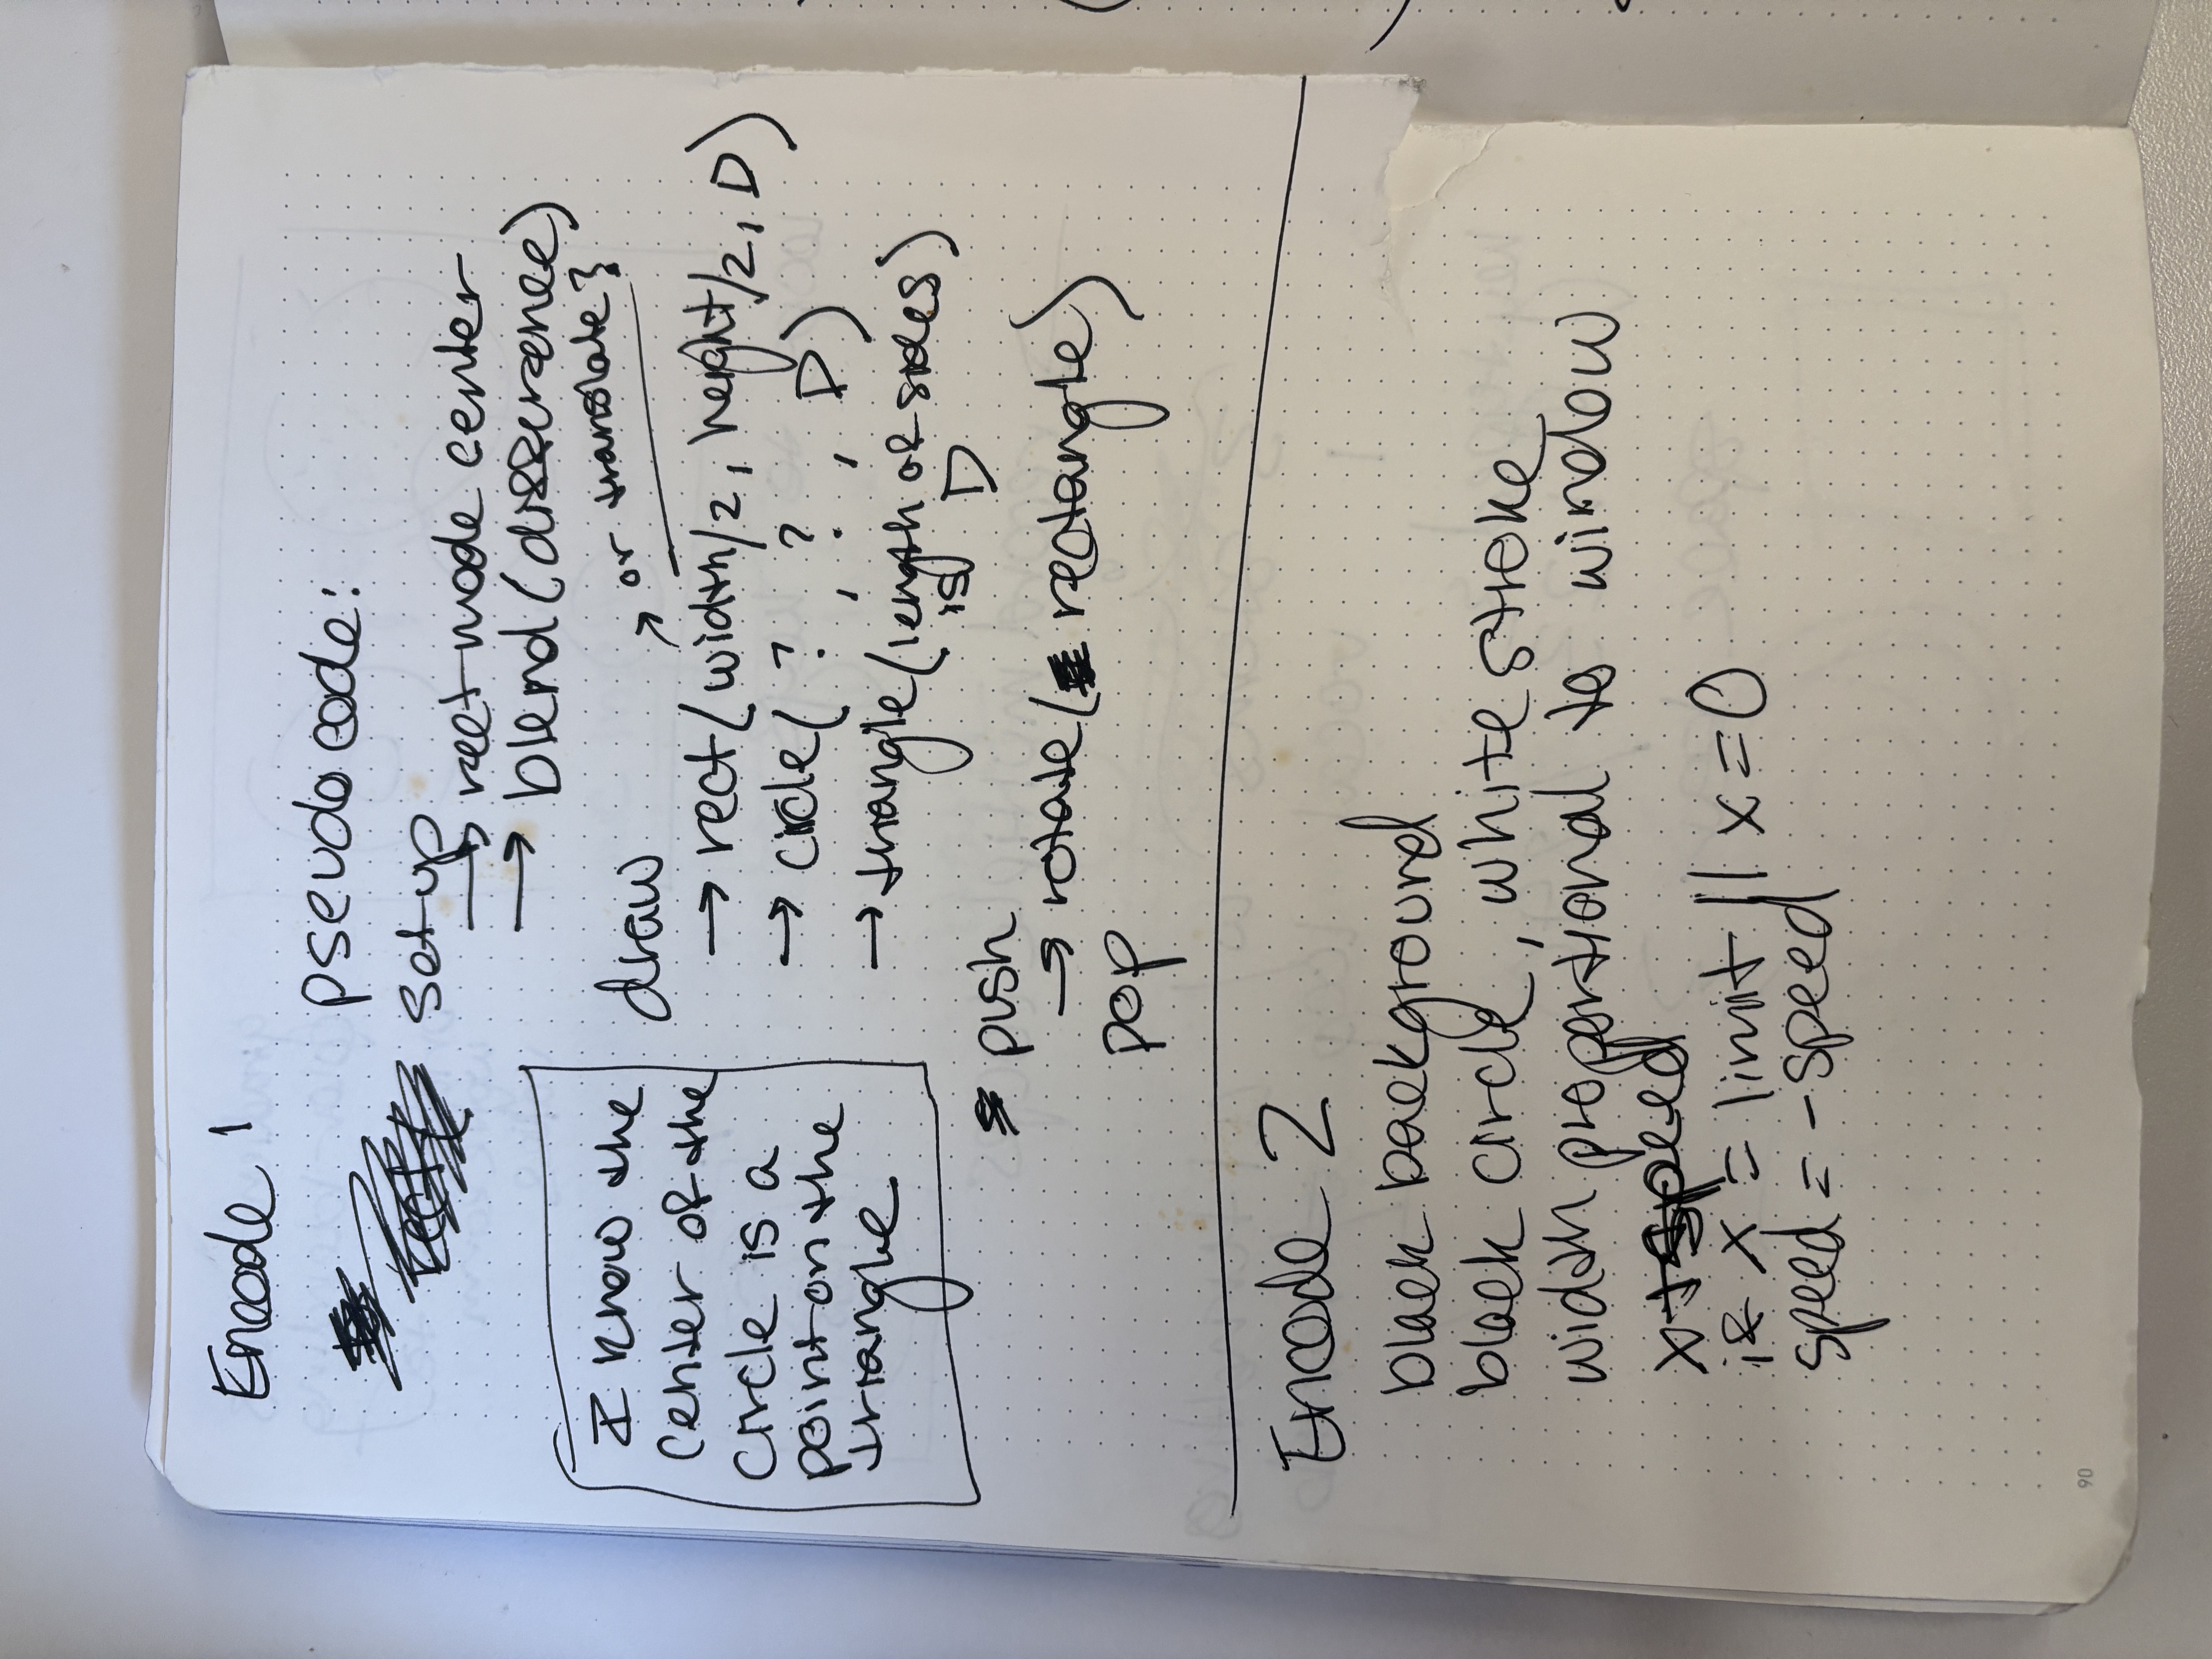 Encode 1
pseudo code:
set-up
→ rect mode center
→ blend (difference)
draw
→ or translate}
→ rect (width/2, height/2, D)
→ circle (?, ?, D)
→ triangle (length of sides)
is D
I know the
center of the
circle is a
point on the
triangle
push
→ rotate (rectangle)
pop
Encode 2
black background
black circle, white stroke
width proportional to window
x + speed
if x = limit || x = 0
speed = - speed
90